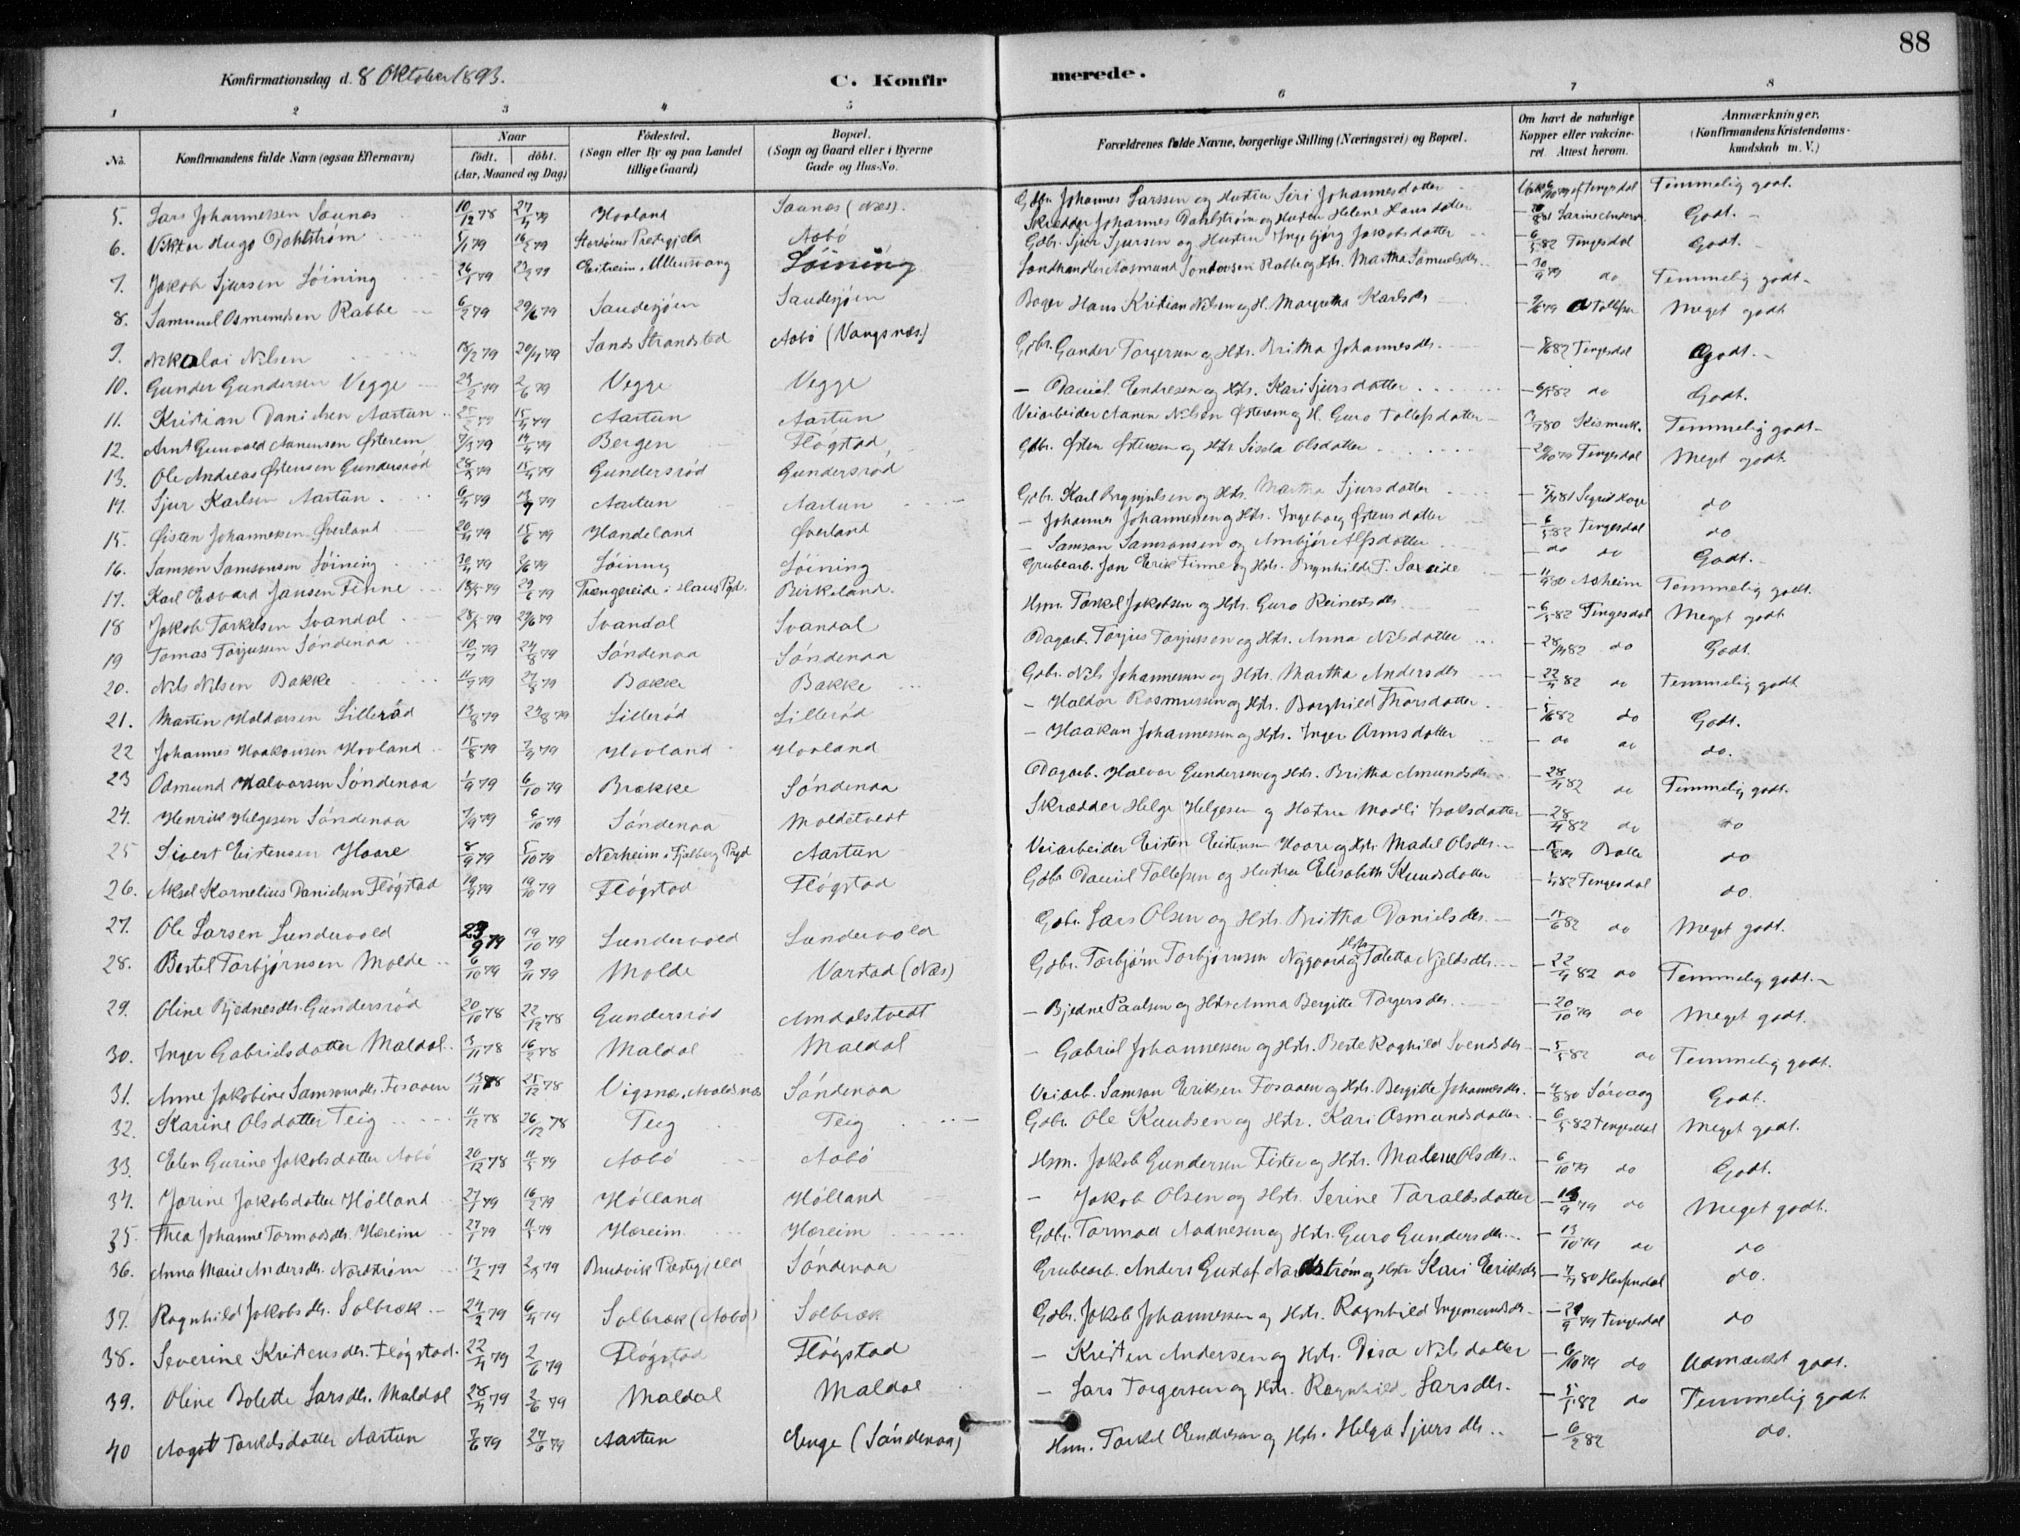 88
Konfirmationsdag d. 8 Oktober 1893.
C. Konfir
merede.
1 2 3 4 5
6 7 8
No. Konfirmandens fulde Navn (ogsaa Efternavn) Naar født. døbt. (Aar, Maaned og Dag) Fødested. (Sogn eller By og paa Landet tillige Gaard) Bopæl. (Sogn og Gaard eller i Byerne Gade og Hus-No.
Forældrenes fulde Navne, borgerlige Stilling (Næringsvei) og Bopæl. Om havt de naturlige Kopper eller vakcineret. Attest herom. Anmærkninger. (Konfirmandens Kristendomskundskab m. V.)
5. Lars Johannessen Saunas 10/12 78 27/4 79 Hovland Saunas (Næs). Johannes Larssen og Hustru Siri Johannesdatter Temmelig godt.
6. Viktor Hugo Dahlstrøm 5/1 79 16/2 79 Aabø Skrædder Johannes Dahlstrøm og Hustru Helene Hansdatter Godt.
7. Jakob Sjursen Løining 26/1 79 23/2 79 Eitreim i Ullensvang Løining Gbr. Sjur Sjursen og Hustru Ingebjørg Jakobsdatter 6/5 82 Tengesdal Godt.
8. Samuel Osmundsen Rabbe 6/2 79 29/6 79 Saudesjøen Saudesjøen Landhandler Aasmund Rabbe og Hstr. Martha Samuelsdtr. 30/9 79 do Temmelig godt
9. Nikolai Nilsen 18/2 79 20/4 79 Sands Strandsted Aabø (Vangsnæs) Bager Hans Kristian Nilsen og H. Margretha Karlsdtr Meget godt
10. Gunder Gundersen Vegge 23/2 79 2/6 79 Vegge Vegge Gbr. Gunder Torgersen og Hstr. Britha Johannesdtr. Tengesdal Godt.
11. Kristian Danielsen Aartun 15/4 79 Aartun Aartun — Daniel Endresen og Hstr. Kari Sjursdatter 6/5 82 do Godt.
12. Arnt Gunvald Aanensen Østerem 7/3 79 14/4 79 Bergen Fløgstad Veiarbeider Aanen Nilsen Østerem og H. Guro Tollefsdatter Temmelig godt
13. Ole Andreas Østensen Gundersrød 28/3 79 15/4 79 Gundersrød Gundersrød Gbr. Østen Østensen og Hstr Sissela Olsdatter 20/10 79 Tengesdal Meget godt
14. Sjur Karlsen Aartun 6/4 79 13/4 79 Aartun Aartun Gbr. Karl Brynjulsen og Hstr. Martha Sjursdatter do
15. Øisten Johannessen Øverland 20/4 79 15/6 79 Handeland Øverland — Johannes Johannessen og Hstr. Ingeborg Østensdatter 6/5 82 Tengesdal do
16. Samson Samsonsen Løining 30/4 79 2/6 79 Løining Løining — Samson Samsonsen og Anbjør Alfsdatter do do Godt.
17. Karl Edvard Jansen Finne 18/5 79 29/6 79 Trængereide i Haus Pgd. Birkeland. Grubearb. Jan Erik Finne og Hstr. Brynhilde T. 11/9 80 Asheim Temmelig godt.
18 Jakob Torkelsen Svandal 28/5 79 29/6 79 Svandal Svandal Hsm. Torkel Jakobsen og Hstr. Guro Reinertsdtr 6/5 82 Tengesdal Meget godt
19 Tomas Torjussen Søndenaa 10/7 79 24/8 79 Søndenaa Søndenaa Dagarb. Torjus Torjussen og Hstr. Anna Nilsdatter 28/4 82 do Godt.
20. Nils Nilsen Bakke 11/7 79 27/8 79 Bakke Bakke Gbr. Nils Johannessen og Hstr. Martha Andersdtr 22/4 82 do Temmelig godt
21. Marten Haldorsen Lillerød 13/8 79 24/8 79 Lillerød Lillerød — Haldor Rasmussen og Hstr. Borghild Thorsdatter 5/6 82 do Godt.
22 Johannes Haakonsen Hovland 15/8 79 7/9 79 Hovland Hovland — Haakon Johannessen og Hstr. Inger Arnsdatter do do do.
23 Odmund Halvorsen Søndenaa 1/9 79 6/10 79 Brakke Søndenaa Dagarb. Halvor Gundersen og Hstr. Britha Amundsdtr 28/4 82 do Temmelig godt.
24. Henrik Helgesen Søndenaa 7/9 79 6/10 79 Søndenaa Moldetvedt Skrædder Helge Helgesen og Hustru Madli Isaksdatter 28/4 82 do do
25 Sivert Eistensen Haare 8/9 79 5/10 79 Nerheim i Fjelberg Pgd Aartun Veiarbeider Eisten Eistensen Haare og Hstr Madel Olsdtr. do
26. Aksel Kornelius Danielsen Fløgstad 19/9 79 19/10 79 Fløgstad Fløgstad Gbr Daniel Tollefsen og Hustru Elisabeth Knudsdatter Tengesdal do.
27. Ole Larsen Lundervold 23/9 79 19/10 79 Lundervold Lundervold Gbr. Lars Olsen og Hstr. Britha Danielsdtr. 15/6 82 do Meget godt.
28. Bertel Torbjørnsen Molde 6/10 79 9/11 79 Molde Varstad (Næs) Gbr. Torbjørn Torbjørnsen Nygaard og Hstr Toletta Njeldsdtr. 22/4 82 do Temmelig godt.
29. Oline Bjednesdtr. Gundersrød 20/10 78 22/12 78 Gundersrød Amdalstvedt — Bjedne Paulsen og Hstr Anna Bergitte Torgersdtr. 20/10 79 do Meget godt.
30. Inger Gabrielsdatter Maldal 3/11 78 16/2 78 Maldal Maldal — Gabriel Johannessen og Hstr. Berte Ragnhild Svendsdtr 5/5 82 do Temmelig godt.
31. Anne Jakobine Samsonsdtr. Fosaaen 13/11 78 25/12 78 Vigsnæs, Søndenaa Veiarb. Samson Eriksen Fosaaen og Hstr. Bergitte Johannesdtr. 4/8 80 Sørvaag Godt.
32. Karine Olsdatter Teig 11/11 78 26/12 78 Teig Teig Gbr. Ole Knudsen og Hstr. Kari Osmundsdatter 6/5 82 Tengesdal Meget godt.
33. Elen Gurine Jakobsdatter Aabø 20/12 78 11/5 79 Aabø Aabø Hsm. Jakob Gundersen Fister og Hstr. Malene Olsdtr. 6/10 79 do Godt.
34. Jorine Jakobsdatter Hølland 27/1 79 16/2 79 Hølland Hølland — Jakob Olsen og Hstr. Serine Taraldsdatter 13/9 79 do Meget godt.
35. Thea Johanne Tormodsdtr. Hæreim 27/1 79 11/5 79 Hæreim Hæreim Gbr. Tormod Aadnesen og Hstr. Guro Gundersdtr. 13/10 79 do do
36. Anna Marie Andersdtr. Nordstrøm 17/2 79 2/3 79 Bruvik Præstegjeld Søndenaa Grubearb. Anders Gustaf Nordstrøm og Hstr Kari Eriksdtr do.
37. Ragnhild Jakobsdtr. Solbræk 24/2 79 6/4 79 Solbræk (Aabø) Solbræk Gbr. Jakob Johannessen og Hstr. Ragnhild Ingemundsdtr 21/9 79 Tengesdal do
38. Severine Kristensdtr. Fløgstad. 22/4 79 2/6 79 Fløgstad Fløgstad — Kristen Andersen og Hstr. Disa Nilsdatter 6/10 79 do Udmærket godt.
39. Oline Bolette Larsdtr. Maldal 28/4 79 2/6 79 Maldal Maldal — Lars Torgersen og Hstr. Ragnhild Larsdtr. 5/5 82 do Temmelig godt
40 Aagot Torkelsdatter Aartun 7/6 79 27/6 79 Aartun Enge (Søndenaa) Hsm. Torkel Endresen og Hstr. Helga Sjursdtr. 6/2 82 do.